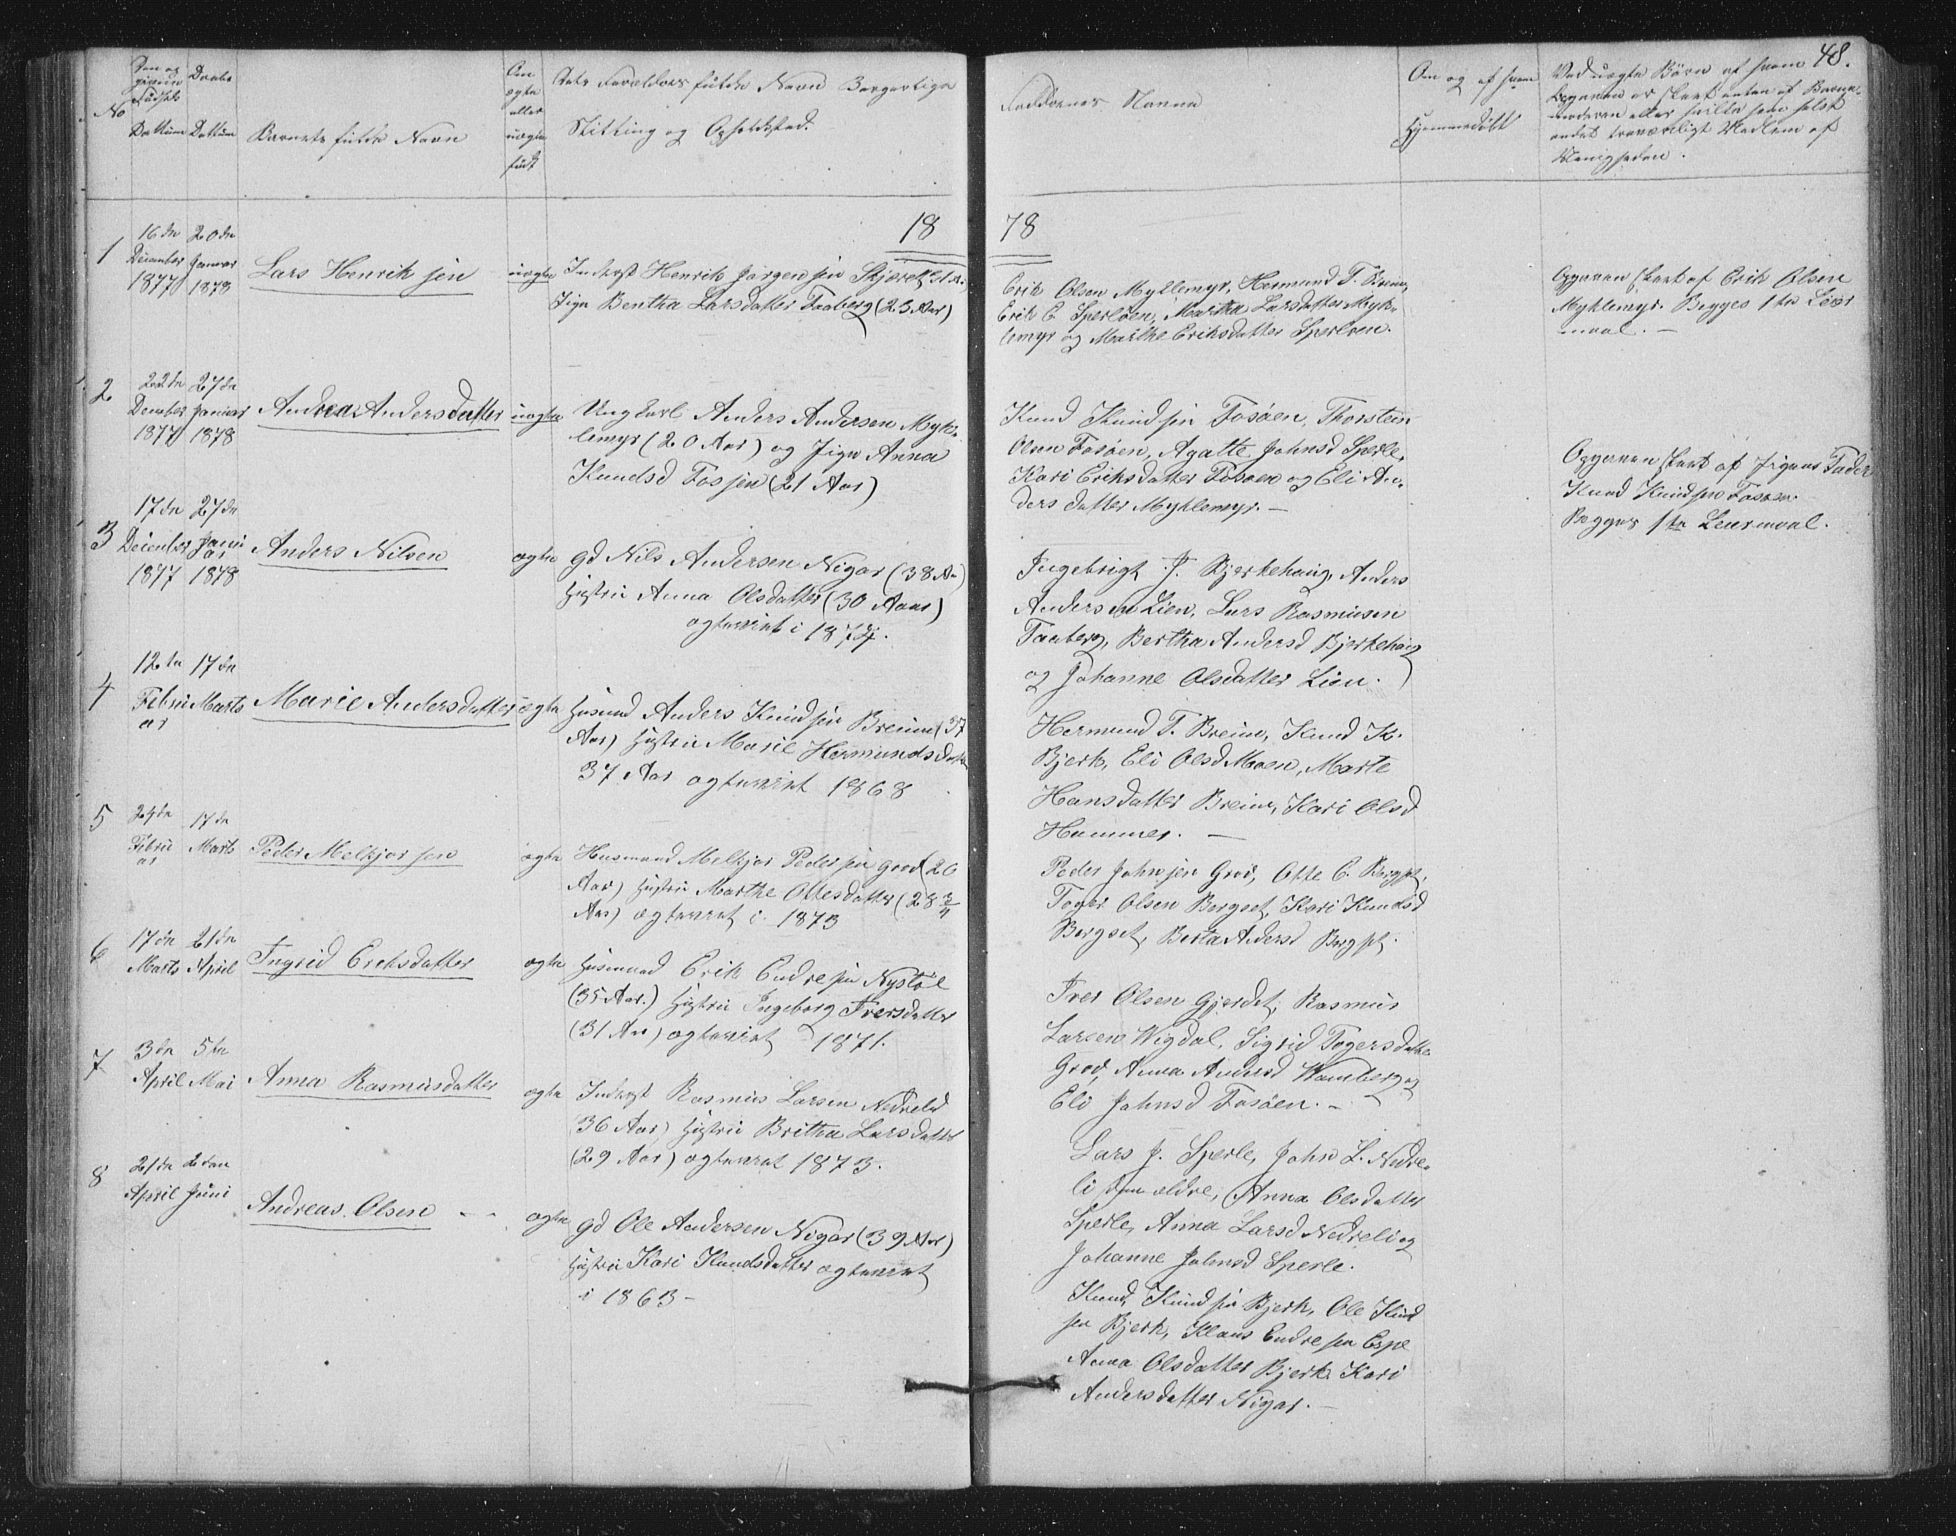 48.
No
Dattum
Daabs
Dattum
Barnets fulde Navn
Om
ægte
eller
uægte
født
Dets Forældres fulde Navn Borgerlige
Stilling og Opholdsted.
Faddernes Navne
Om og af hvem
Hjemmedøbt
Ved uægte Børn af hvem
Opgaven er skeet enten af Barne-
moderen eller
andet troværdigt Medlem af
Menigheden.
18 78
1
16de
December
1877
20de
Januar
1878
Lars Henriksen
uægte
Inderst Henrik Jørgensen
Pige Bentha Larsdatter Faaberg (23 Aar)
Erik Olsen Myklemyr, Hermund T. Breim,
Erik E. Sperleøen, Martha Larsdatter Myk-
lemyr og Marthe Eriksdatter Sperleøen.
Opgaven skeet af Erik Olsen
Myklemyr. Begges 1te Leier
maal. —
2
22de
December
1877
27de
Januar
1878
Andrea Andersdatter
uægte
Ungkarl Anders Andersen Myk-
lemyr (20 Aar) og Pige Anna
Knudsd Fosøen (21 Aar)
Knud Knudsen Fosøen, Thorstein
Olsen Fosøen, Agatte Johnsd Sperle,
Kari Eriksdatter Fosøen og Eli An-
dersdatter Myklemyr. —
Opgaven skeet af Pigens Fader
Knud Knudsen Fosøen.
Begges 1te Leiermaal.
3
17de
December
1877
27de
Janu
ar
1878
Anders Nilsen
ægte
Gd Nils Andersen Nigar (38 Aar)
Hustru Anna Olsdatter (30 Aar)
ægteviet i
Ingebrigt J. Bjerkehaug, Anders
Andersen Lien, Lars Rasmusen
Faaberg, Bertha Andersd Bjerkehaug
og Johanne Olsdatter Lien.
4
12te
Febru
ar
17de
Marts
Marie Andersdatter
ægte
Husmd Anders Knudsen Breim (37
Aar) Hustru Marie Hermundsdatter
37 Aar ægteviet 1868
Hermund T. Breim, Knud K.
Bjerk, Eli Olsd Moen, Marte
Hansdatter Breim, Kari Olsd
Hammer. —
5
24de
Febru
ar
17de
Marts
Peder Melkjorsen
ægte
Husmand Melkjor Pedersen Grov (26
Aar) Hustru Marthe Ottesdatter (28 3/4
Aar) ægteviet i 1873
Peder Johnsen Grov, Otte E. Bergset,
Toger Olsen Bergset, Kari Knudsd
Bergset, Berta Andersd Bergset.
6
17de
Marts
21de
April
Ingrid Eriksdatter
ægte
Husmand Erik Endresen Nystøl
(35 Aar.) Hustru Ingeborg Iversdatter
(31 Aar) ægteviet 1871.
Iver Olsen Gjerdet, Rasmus
Larsen Wigdal, Sigrid Togersdatter
Grov, Anna Andersd Wamberg og
Eli Johnsd Fosøen. —
7
3de
April
5te
Mai
Anna Rasmusdatter
ægte
Inderst Rasmus Larsen Nedreli
36 Aar) Hustru Britha Larsdatter
(29 Aar) ægteviet 1873.
Lars J. Sperle, John L. Nedre-
li den ældre, Anna Olsdatter
Sperle, Anna Larsd Nedreli og
Johanne Johnsd Sperle.
8
21de
April
2den
Juni
Andreas Olsen
ægte
Gd Ole Andersen Nigar (39 Aar)
Hustru Kari Knudsdatter ægteviet
i 1863 –
Knud Knudsen Bjerk, Ole Knud
sen Bjerk, Klaus Endresen Espe
Anna Olsdatter Bjerk, Kari
Andersdatter Nigar. —